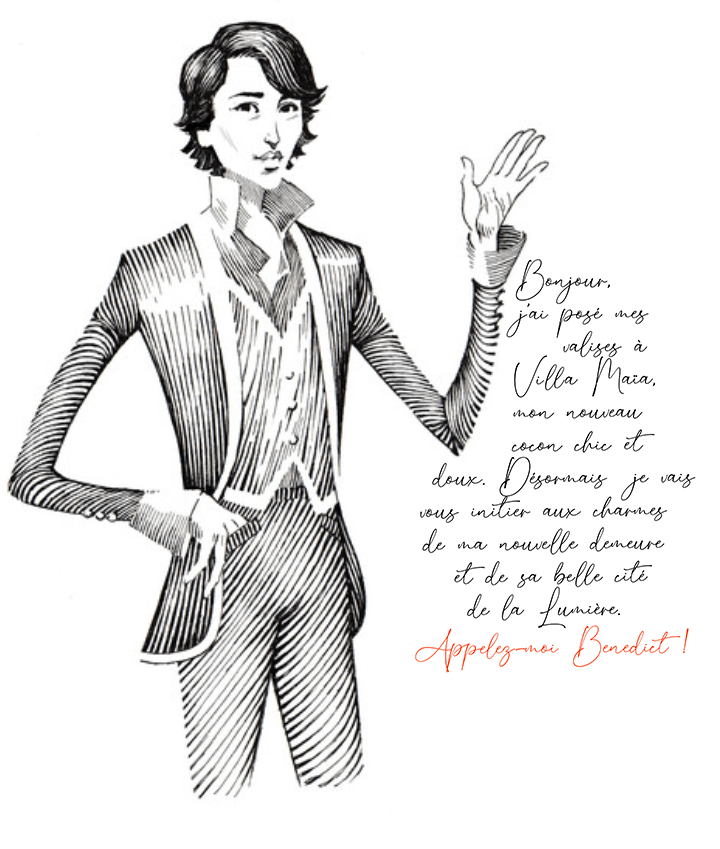 Bonjour,
j'ai posé mes
valises à
Villa Maïa,
mon nouveau
cocon chic et
doux. Désormais je vais
vous initier aux charmes
de ma nouvelle demeure
et de sa belle cité
de la Lumière.
Appelez-moi Benedict !